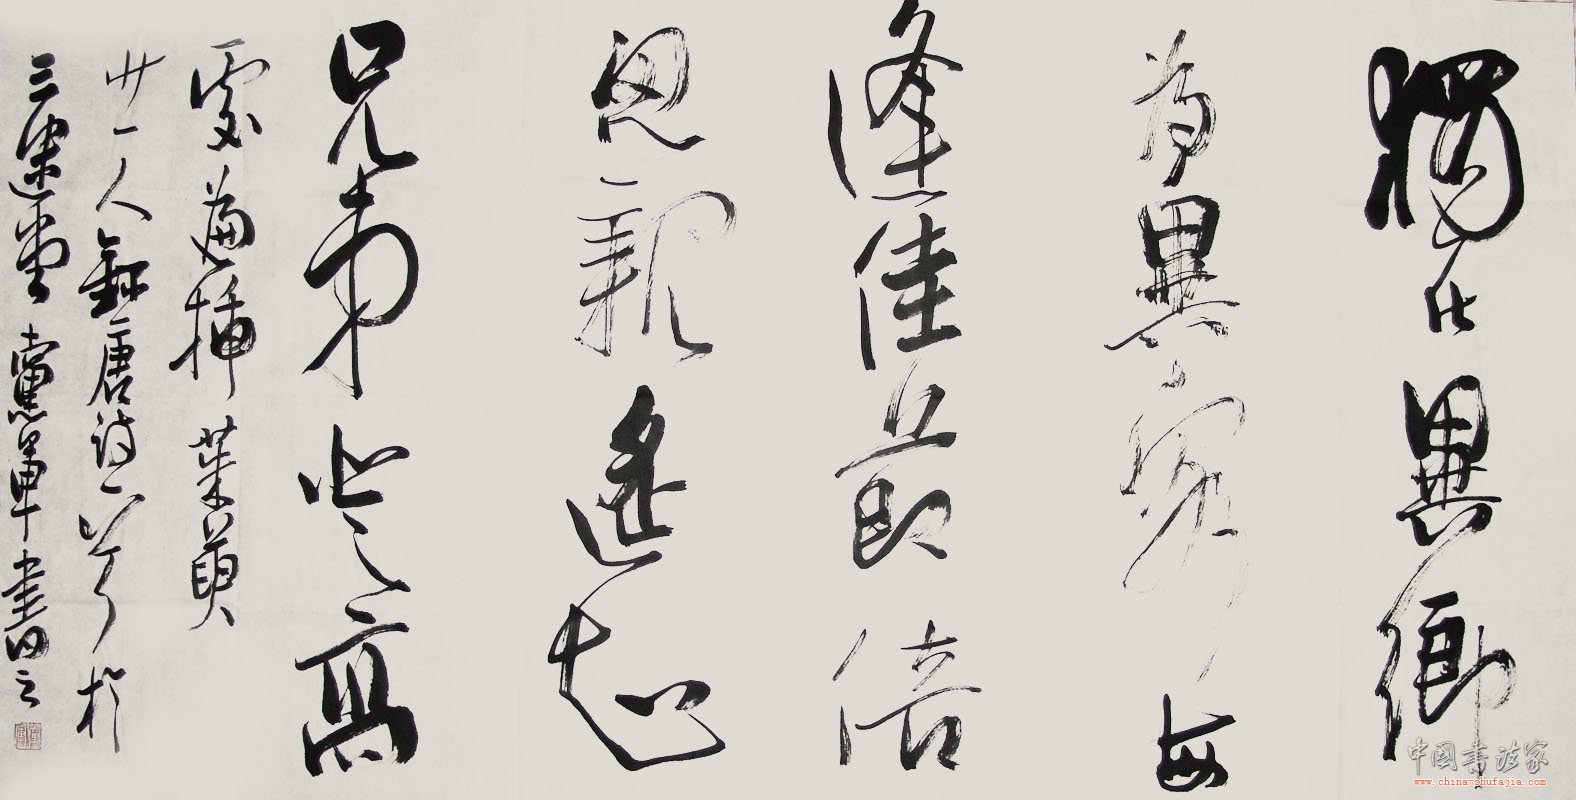 獨在異鄉
為異客每
逢佳節倍
思親遙知
兄弟登高
處遍插茱萸
少一人錄唐詩一首於
三 堂 黨軍書之
中國書法家
www.china-shufajia.com